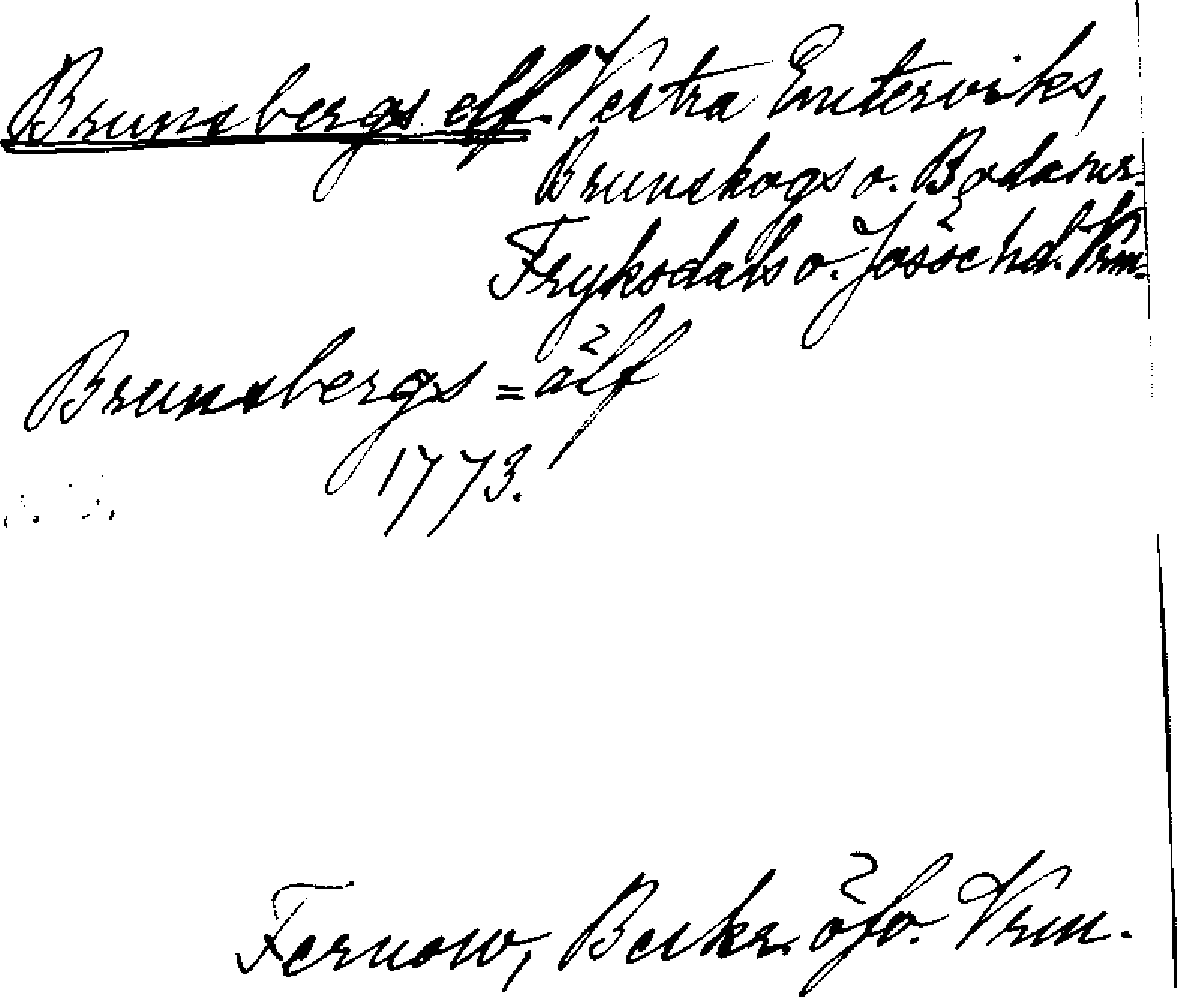 Brunsbergs elf. Vestra Emterviks,
Brunskogs o. Boda snr.
Fryksdals o. Jösse hd. Vrm.
Brunsbergs=älf
1773.
Fernow, Beskr. öfv. Vrm.